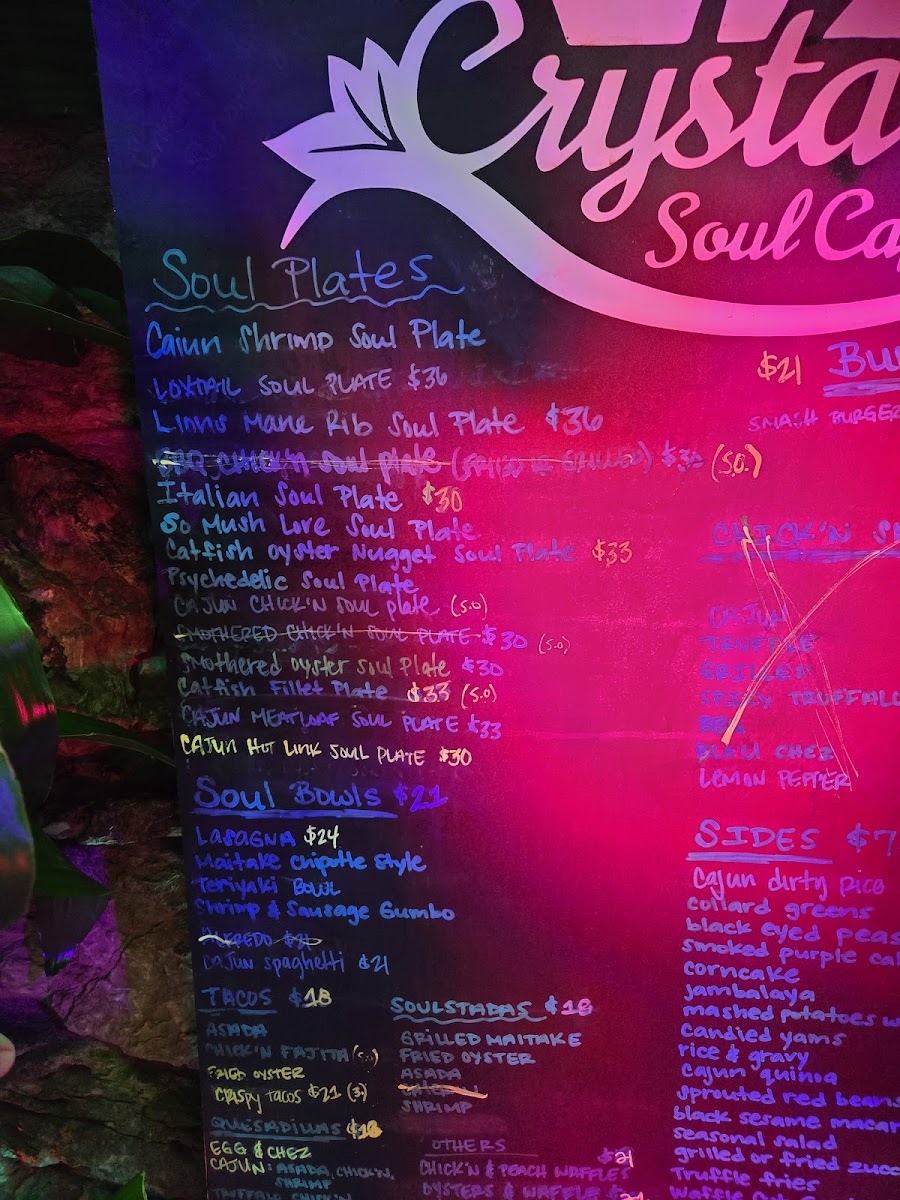 Crysta
Soul Ca
Soul Plates
Cajun Shrimp Soul Plate
LOXTAIL SOUL PLATE $36
Lions Mane Rib Soul Plate $36
BBQ CHICK'N Soul plate (FRIED or GRILLED) $30 (S.O.)
Italian Soul Plate $30
So Mush Love Soul Plate
Catfish Oyster Nugget Soul Plate $33
Psychedelic Soul Plate
CAJUN CHICK'N SOUL plate (S.O)
SMOTHERED CHICK'N SOUL PLATE $30 (S.O)
SMothered oyster soul Plate $30
Catfish Fillet Plate $33 (S.O)
CAJUN MEATLOAF SOUL PLATE $33
CAJUN HOT LINK SOUL PLATE $30
Soul Bowls $21
LASAGNA $24
Maitake Chipotle Style
Teriyaki Bowl
Shrimp & Sausage Gumbo
ALFREDO $21
CAJUN spaghetti $21
TACOS $18
ASADA
CHICK'N FAJITA
FRIED OYSTER
CRISPY TACOS $21 (3)
QUESADILLAS $18
EGG & CHEZ
CAJUN: ASADA, CHICK'N,
SHRIMP
TRUFFLE CHICK'N
SOULSTADAS $18
GRILLED MAITAKE
FRIED OYSTER
ASADA
CHICK'N
SHRIMP
OTHERS
$21
CHICK'N & PEACH WAFFLES
OYSTERS & WAFFLE $21
$21 BU
SMASH BURGER
CHICK'N S
CAJUN
TRUFFLE
GRILLED
SPICY TRUFFALO
BBQ
BLEU CHEZ
LEMON PEPPER
SIDES $7
Cajun dirty rice
collard greens
black eyed peas
smoked purple ca
corncake
jambalaya
mashed potatoes w
candied yams
rice & gravy
cajun quinoa
sprouted red beans
black sesame macar
seasonal salad
grilled or fried zucc
Truffle fries